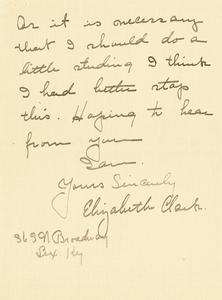 As it is necessary
that I should do a
little studing I think
I had better stop
this. Hoping to hear
from you
I am.
Yours Sincerely
Elizabeth Clark.
363 N Broadway
Lex. Ky